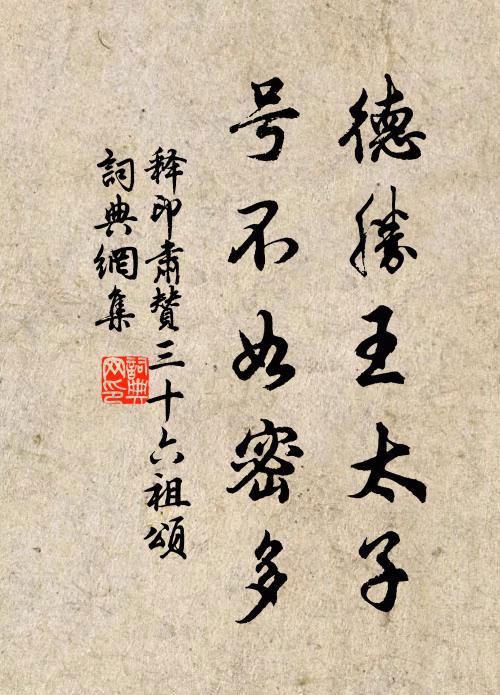 德勝王太子
号不如密多
释印肅贊三十六祖頌
詞典網集
詞典
网印